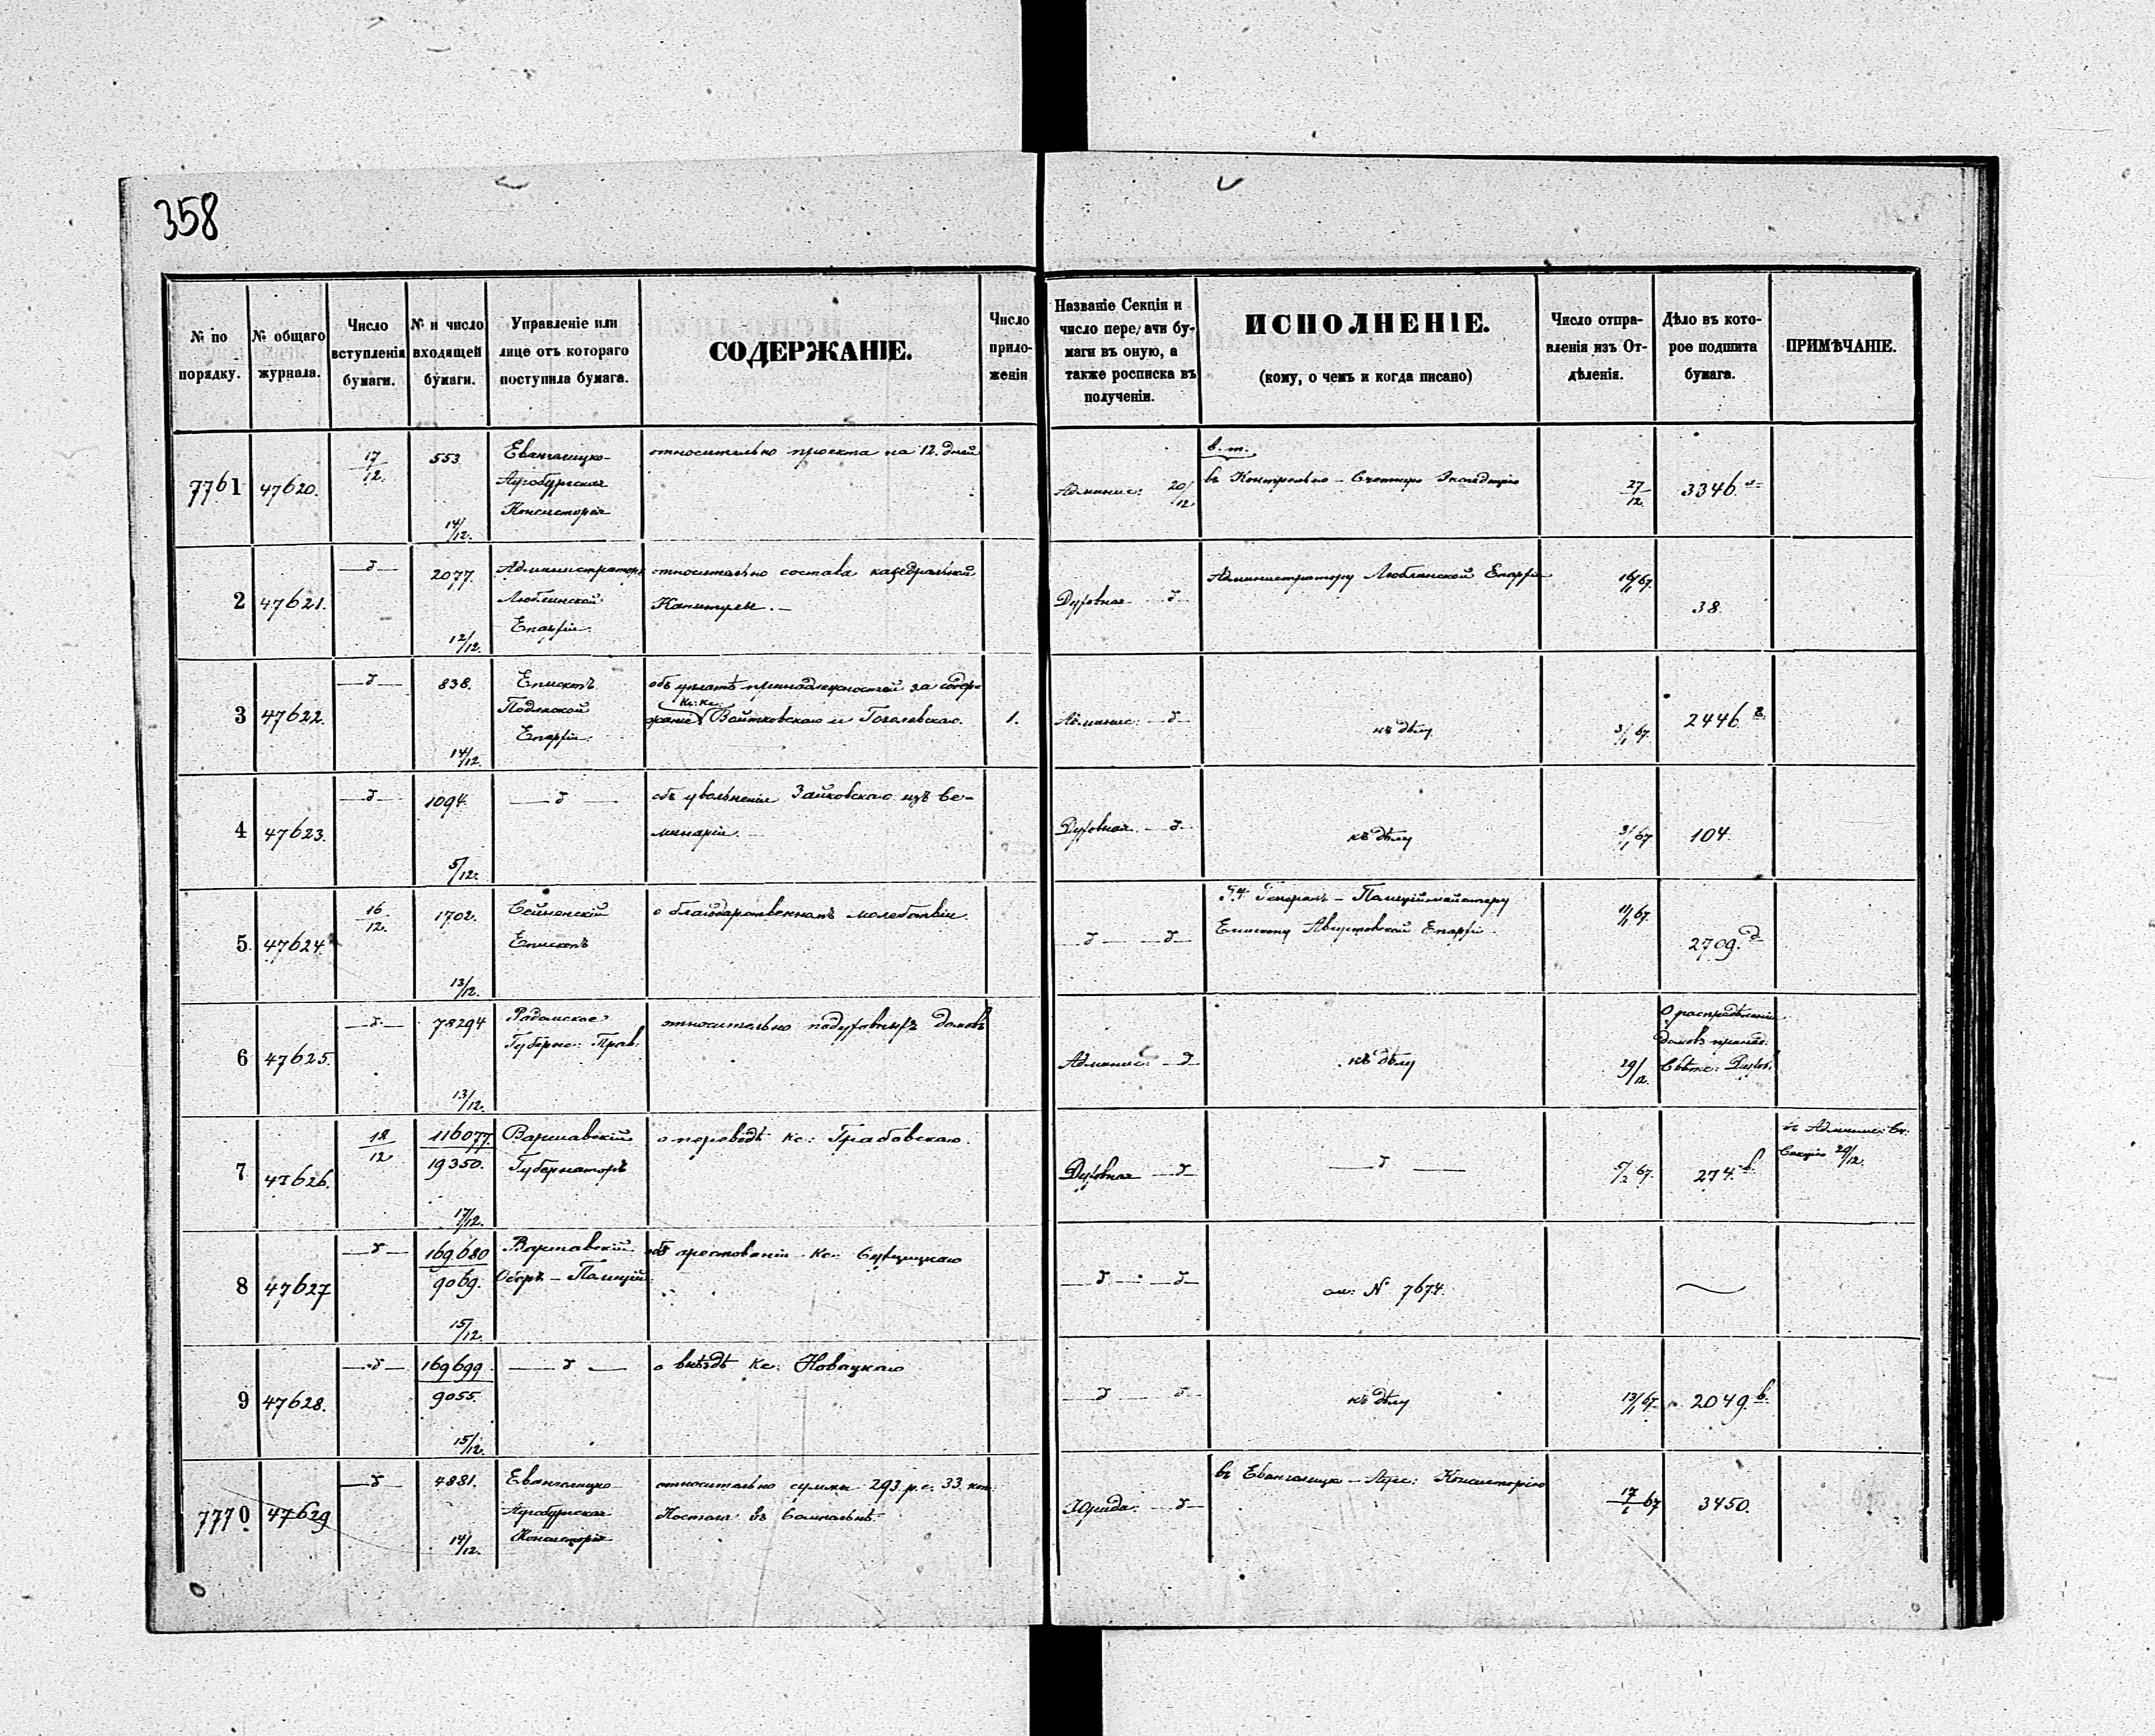 358
№ по порядку.
№ общаго журнала.
Число вступленія бумаги.
№ и число входящей бумаги.
Управленіе или лице отъ котораго поступила бумага.
СОДЕРЖАНІЕ.
Число приложеній
Названіе Секціи и число передачи бумаги въ оную, а также росписка въ полученіи.
ИСПОЛНЕНІЕ.
(кому, о чемъ и когда писано)
Число отправленія изъ Отдѣленія.
Дѣло въ которое подшита бумага.
ПРИМѢЧАНІЕ.
7761 47620. 17/12. 553 14/12.
Евангелицко-
Аугсбургская
Консисторія
относительно проекта на 12. дней
Админис: 20/12.
в. т.
въ Контрольно-Счетную Экспедицію
27/12. 3346.
2 47621. —д— 2077. 12/12.
Администраторъ
Люблинской
Епархіи.
относительно состава кафедральной
Капитулы. —
Духовная —д—
Администратору Люблинской Епархіи
16/1 67. 38.
3 47622. —д— 838. 14/12.
Епископъ
Подляской
Епархіи.
объ уплатѣ принадлежностей за содер-
Кс: Кс:
жаніе Войтковскаго и Гоголевскаго. 1.
Админис: —д—
къ дѣлу
3/1 67. 2446
4 47623. —д— 1094. 5/12.
—д—
объ увольненіи Зайковскаго изъ Се-
минаріи.
Духовная —д—
къ дѣлу
3/1 67 104.
5 47624. 16/12. 1702. 13/12.
Сейненскій
Епископъ
о благодарственномъ молебствіи.
—д— —д—
Генералъ-Полиційместеру
Епископу Августовской Епархіи.
11/1 67. 2709. д
6 47625. —д— 78294 13/12.
Радомское
Губернс: Прав:
относительно подуховныхъ домовъ
Админис: —д
къ дѣлу
29/12.
О распредѣленіи
домовъ принад.
Свѣтс: Духов.
7 47626. 18/12 116077/19350. 17/12.
Варшавскій
Губернаторъ
о переводѣ Кс: Грабовскаго.
Духовная —д
—д—
5/2 67. 274. в.
Админис:
Секцію 29/12.
8 47627 —д— 169680/9069. 15/12.
Варшавскій
Оберъ-Полицій:
объ арестованіи Кс:
—д— —д—
см: № 7674.
9 47628. —д— 169699/9055. 15/12.
—д—
о въѣздѣ Кс: Новацкаго
—д— —д—
къ дѣлу
13/1 67. 2049. в.
7770 47629 —д— 4881. 14/12.
Евангелицко
Аугсбургская
Консисторія
относительно суммы 293. р. с. 33. коп.
Костела въ Сомпольнѣ.
Юрида: —д—
въ Евангелицко-Аугс: Консисторію
17/1 67 3450.